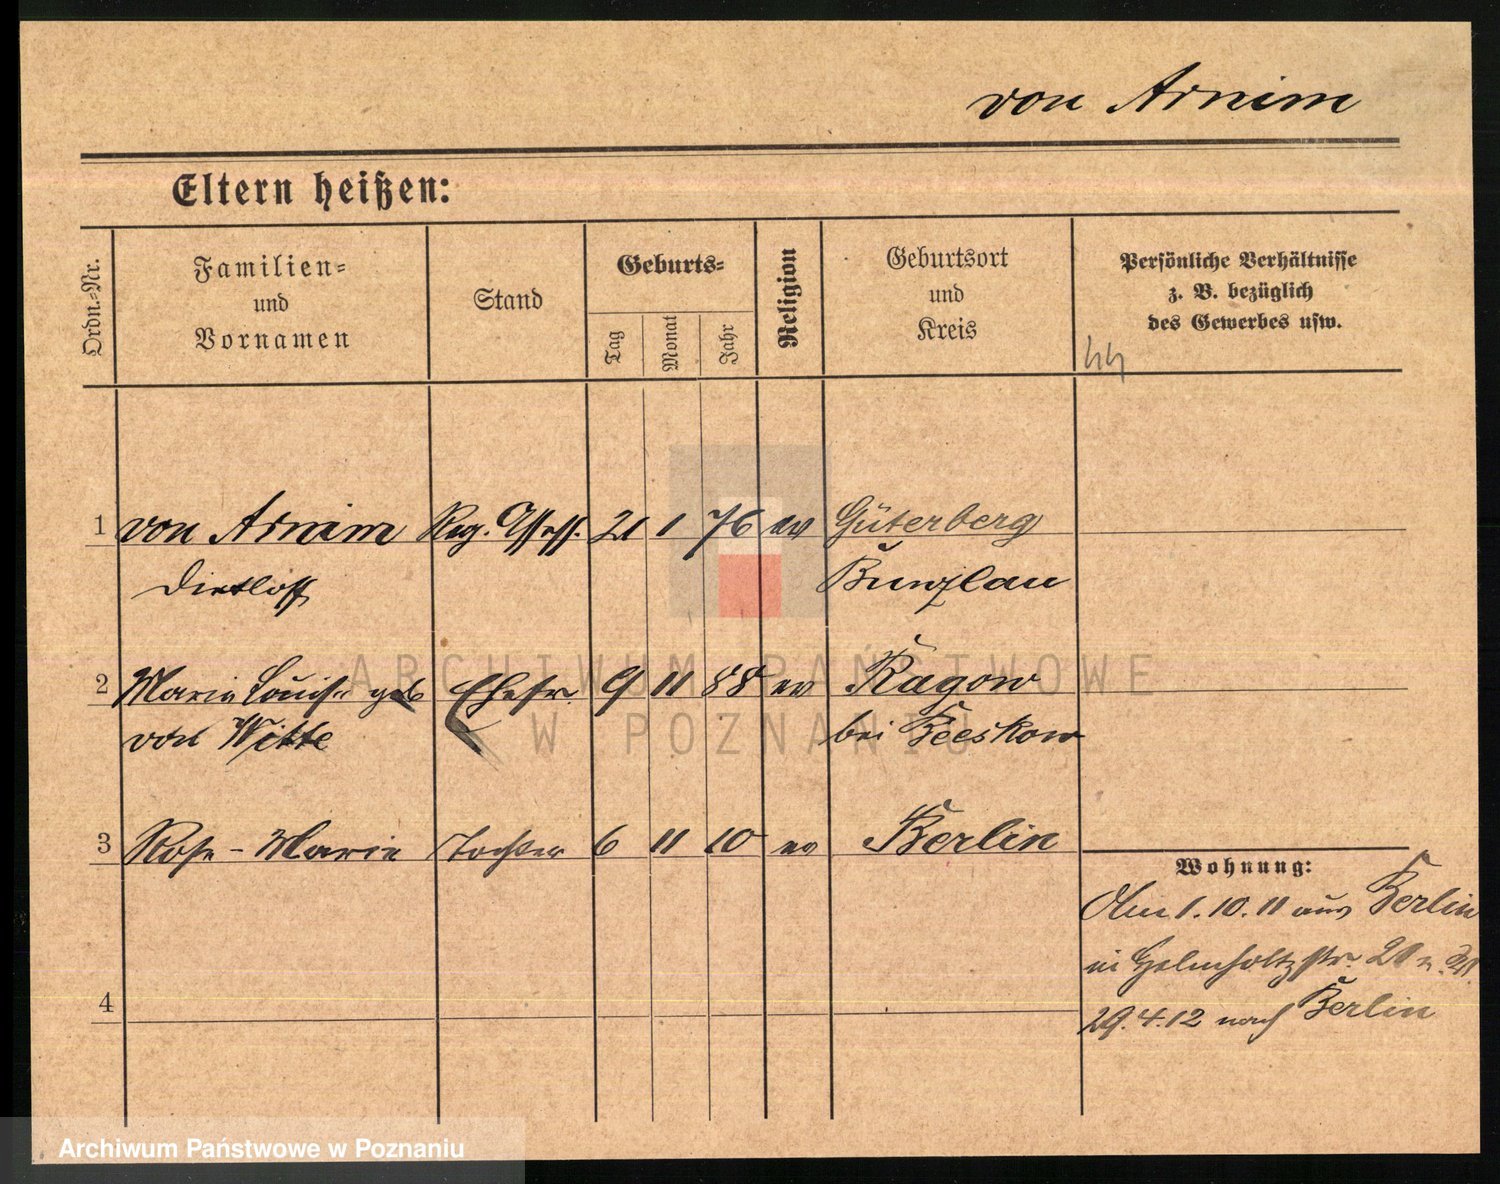 von Arnim
Eltern heißen:
Ordn.-Nr.
Familien-
und
Vornamen
Stand
Geburts-
Tag
Monat
Jahr
Religion
Geburtsort
und
Kreis
Persönliche Verhältnisse
z. B. bezüglich
des Gewerbes usw.
44
1 von Arnim Reg. Assess. 21 1 76 ev Güterberg
Dietloff Bunzlau
2 Marie Louise geb Ehefr. 9 11 88 ev Ragow
von Witte bei Beeskow
3 Rose-Marie Tochter 6 11 10 ev Berlin
Wohnung:
Am 1.10.11 aus Berlin
in Helmholtzstr. 20
4
29.4.12 nach Berlin
ARCHIWUM PAŃSTWOWE
W POZNANIU
Archiwum Państwowe w Poznaniu